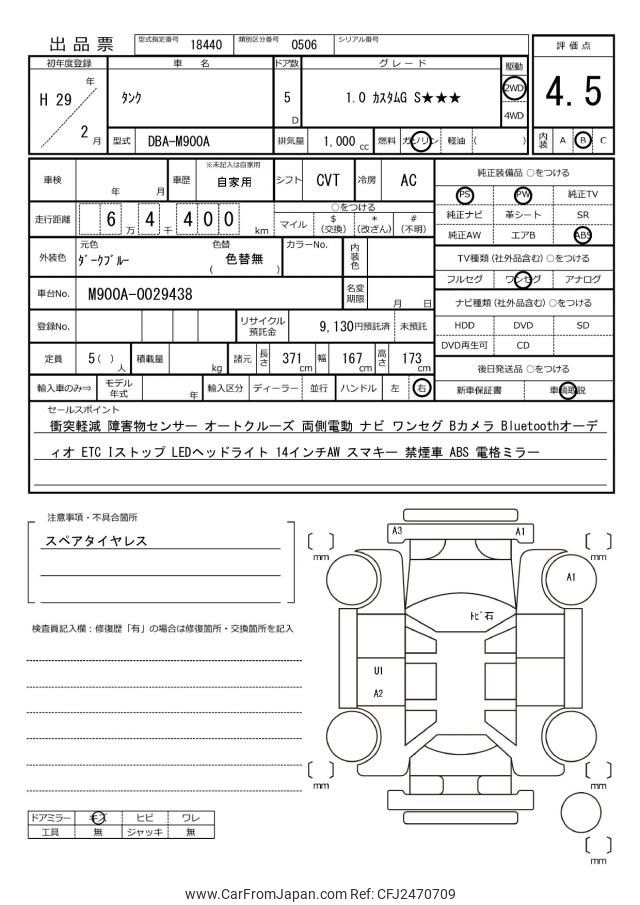 出品票 型式指定番号 18440 類別区分番号 0506 シリアル番号
評価点
4.5
内装 A B C
初年度登録 車名 ドア数 グレード 駆動
H 29 年 2 月 タンク 5 D 1.0 カスタムG S★★★ 2WD 4WD
型式 DBA-M900A 排気量 1,000 cc 燃料 ガソリン 軽油 ( )
車検 年 月 車歴 ※未記入は自家用 自家用 シフト CVT 冷房 AC
走行距離 6 万 4 千 4 0 0 km ○をつける
マイル $ (交換) * (改ざん) # (不明)
外装色 元色 ダークブルー 色替 ( 色替無 ) カラーNo. 内装色
車台No. M900A-0029438 名変期限 月 日
登録No. リサイクル預託金 9,130円預託済 未預託
定員 5 ( ) 人 積載量 kg 諸元 長さ 371 cm 幅 167 cm 高さ 173 cm
輸入車のみ⇒ モデル年式 年 輸入区分 ディーラー 並行 ハンドル 左 右
純正装備品 ○をつける
PS PW 純正TV
純正ナビ 革シート SR
純正AW エアB ABS
TV種類 (社外品含む) ○をつける
フルセグ ワンセグ アナログ
ナビ種類 (社外品含む) ○をつける
HDD DVD SD
DVD再生可 CD
後日発送品 ○をつける
新車保証書 車輌取説
セールスポイント
衝突軽減 障害物センサー オートクルーズ 両側電動 ナビ ワンセグ Bカメラ Bluetoothオーデ
ィオ ETC Iストップ LEDヘッドライト 14インチAW スマキー 禁煙車 ABS 電格ミラー
注意事項・不具合箇所
スペアタイヤレス
検査員記入欄：修復歴「有」の場合は修復箇所・交換箇所を記入
A3 A1
mm mm
A1
トビ石
U1
A2
mm mm
mm
ドアミラー キズ ヒビ ワレ
工具 無 ジャッキ 無
www.CarFromJapan.com Ref: CFJ2470709